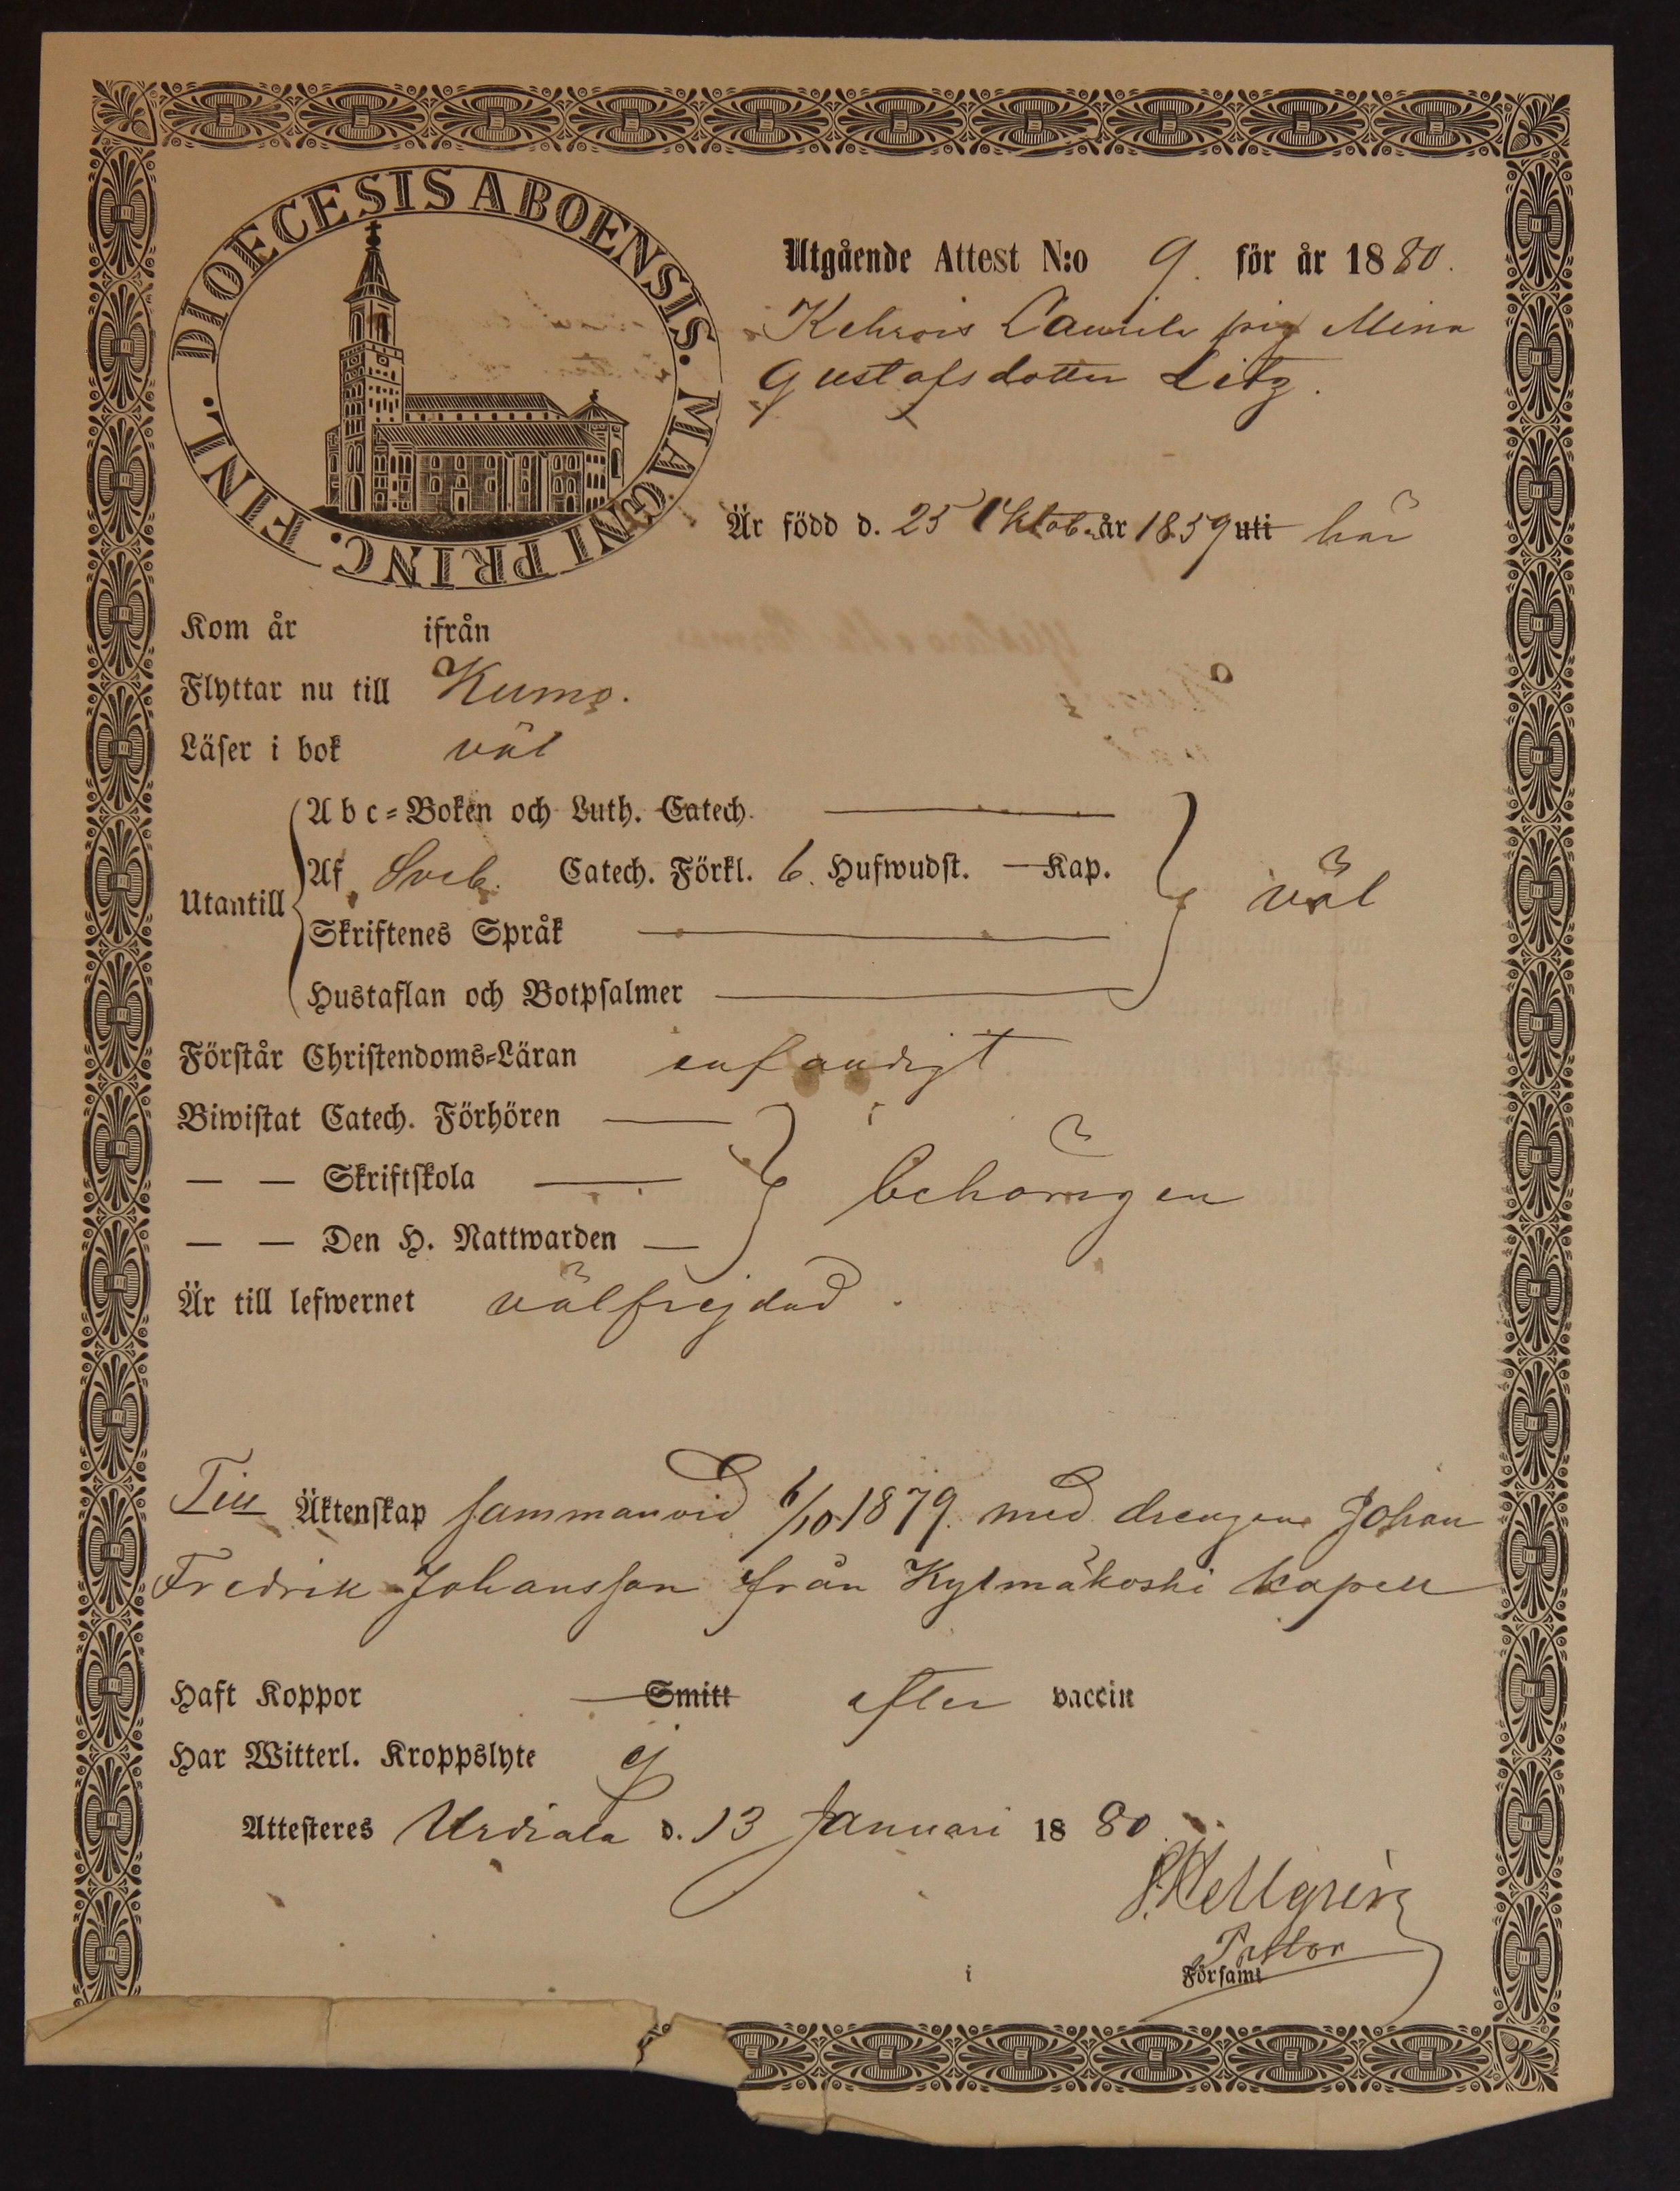 DIOECESIS ABOENSIS. MAGNI PRINC. FINL.
Utgående Attest N:o 9. för år 1880.
Kehrois Laurila pig Mina
Gustafsdotter Litz.
Är född d. 25 Oktob. år 1859 uti här
Kom år ifrån
Flyttar nu till Kumo.
Läser i bok väl
Abc=Boken och Luth. Catech.
Utantill Af Sveb. Catech. Förkl. 6. Hufwudst. — Kap. väl
Skriftenes Språk
Hustaflan och Botpsalmer
Förstår Christendoms=Läran enfaldigt
Biwistat Catech. Förhören
— — Skriftskola behörigen
— — Den H. Nattwarden
Är till lefwernet välfrejdad.
Till Äktenskap sammanvid 6/10 1879. med drengen Johan
Fredrik Johansson från Kylmäkoski kapell
Haft Koppor Smitt efter vaccin
Har Witterl. Kroppslyte ej
Attesteres Urdiala d. 13 Januari 1880.
Hellgrén
Pastor
i Församl